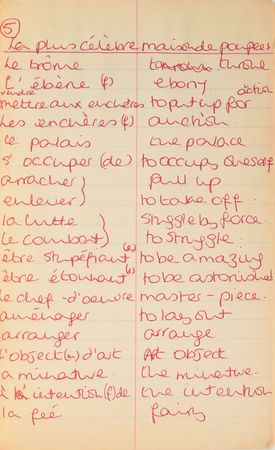 5
La plus célèbre maison de poupées
Le trône throne
L'ébène (f) ebony
vendre auction
mettre aux enchères to put up for
Les enchères (f) auction
Le palais the palace.
s'occuper (de) to occupy oneself
arracher } pull up
enlever } to take off.
la lutte } struggle by force.
Le combat } to struggle.
être stupéfiant (e) to be amazing
être étonnant (e) to be astonished
Le chef-d'oeuvre master-piece.
aménager to lay out
arranger arrange.
L'object (m) d'art Art object
a minative. the minative.
à l'intention (f) de the intention
la feé fairy